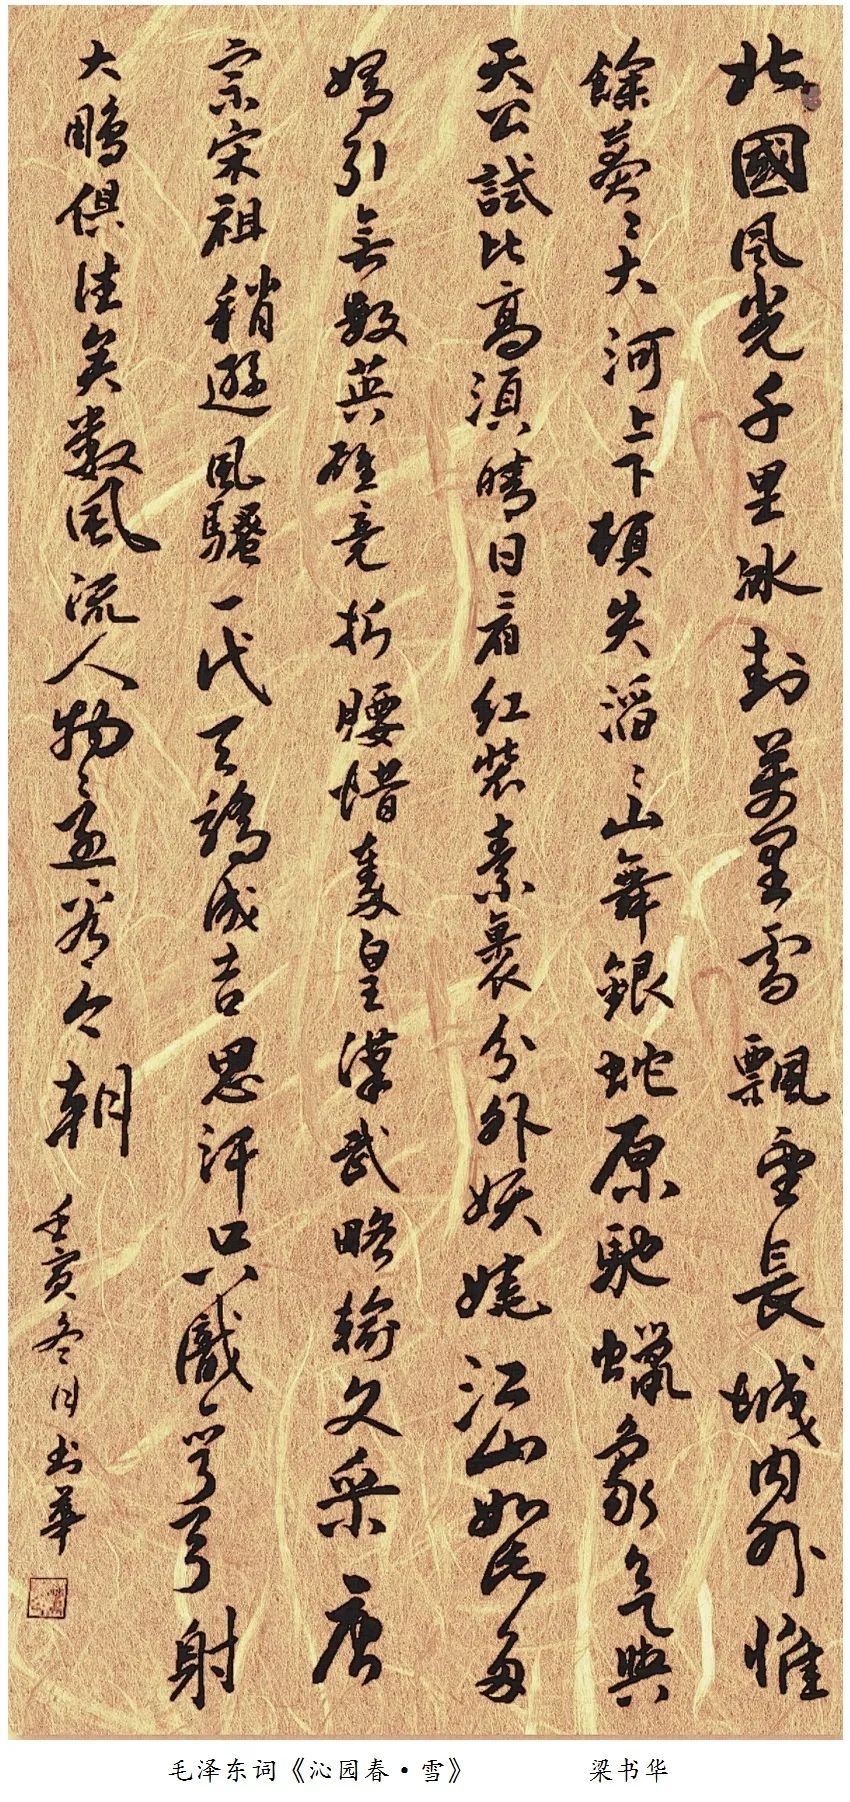 北國風光千里冰封萬里雪飄望長城內外惟
餘莽〻大河上下頓失滔〻山舞銀蛇原馳蠟象欲與
天公試比高須晴日看紅裝素裹分外妖嬈江山如此多
嬌引無數英雄竞折腰惜秦皇漢武略輸文采唐
宗宋祖稍遜風騷一代天驕成吉思汗只識彎弓射
大鵰俱往矣數風流人物還看今朝
壬寅冬月书華
毛泽东词《沁园春·雪》 梁书华